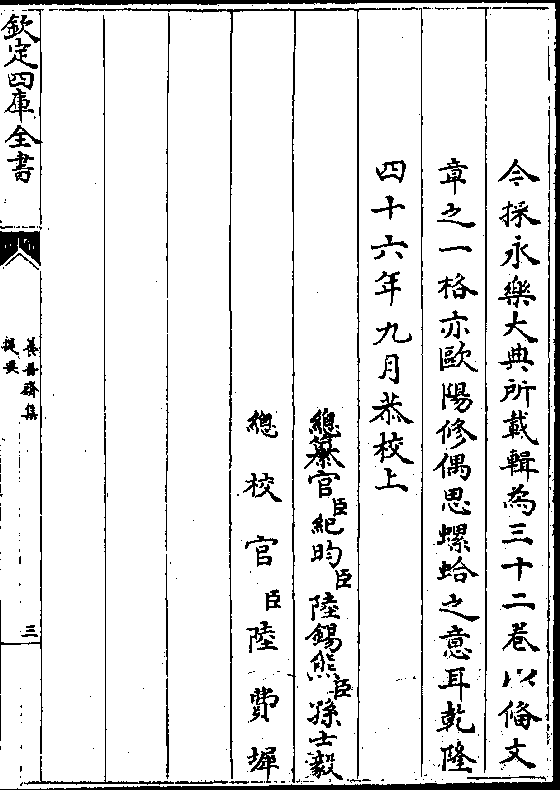 今採永樂大典所載輯為三十二卷以備文
章之一格亦歐陽修偶思螺蛤之意耳乾隆
四十六年九月恭校上
總纂官臣紀昀臣陸錫熊臣孫士毅
總校官臣陸費墀
欽定四庫全書
養吾齋集
提要
三